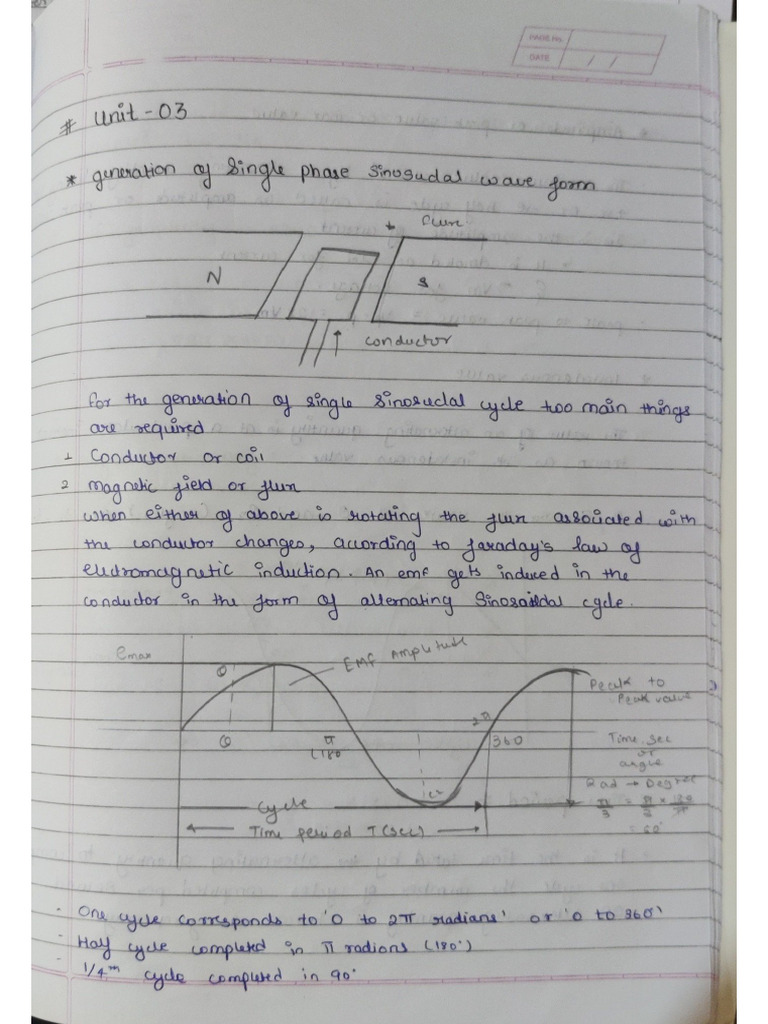 PAGE No.
DATE / /
# Unit - 03
* generation of Single phase Sinosudal wave form
flux
N
s
conductor
for the generation of single sinosudal cycle too main things
are required
1 Conductor or coil
2 Magnetic field or flux
when either of above is rotating the flux associated with
the conductor changes, according to faraday's law of
eludromagnetic induction. An emf gets induced in the
conductor in the form of alternating Sinosaidal cycle.
emax
EMF Amplitude
θ
Peak to
Peak value
2π
θ
π
(180
360
Time. sec
or
angle
Rad → Degree
π/3 = π/3 × 180/π
= 60°
cycle
Time period T (sec)
- One cycle corresponds to '0 to 2π radians' or '0 to 360°'
- Half cycle completed in π radions (180°)
- 1/4th cycle completed in 90°